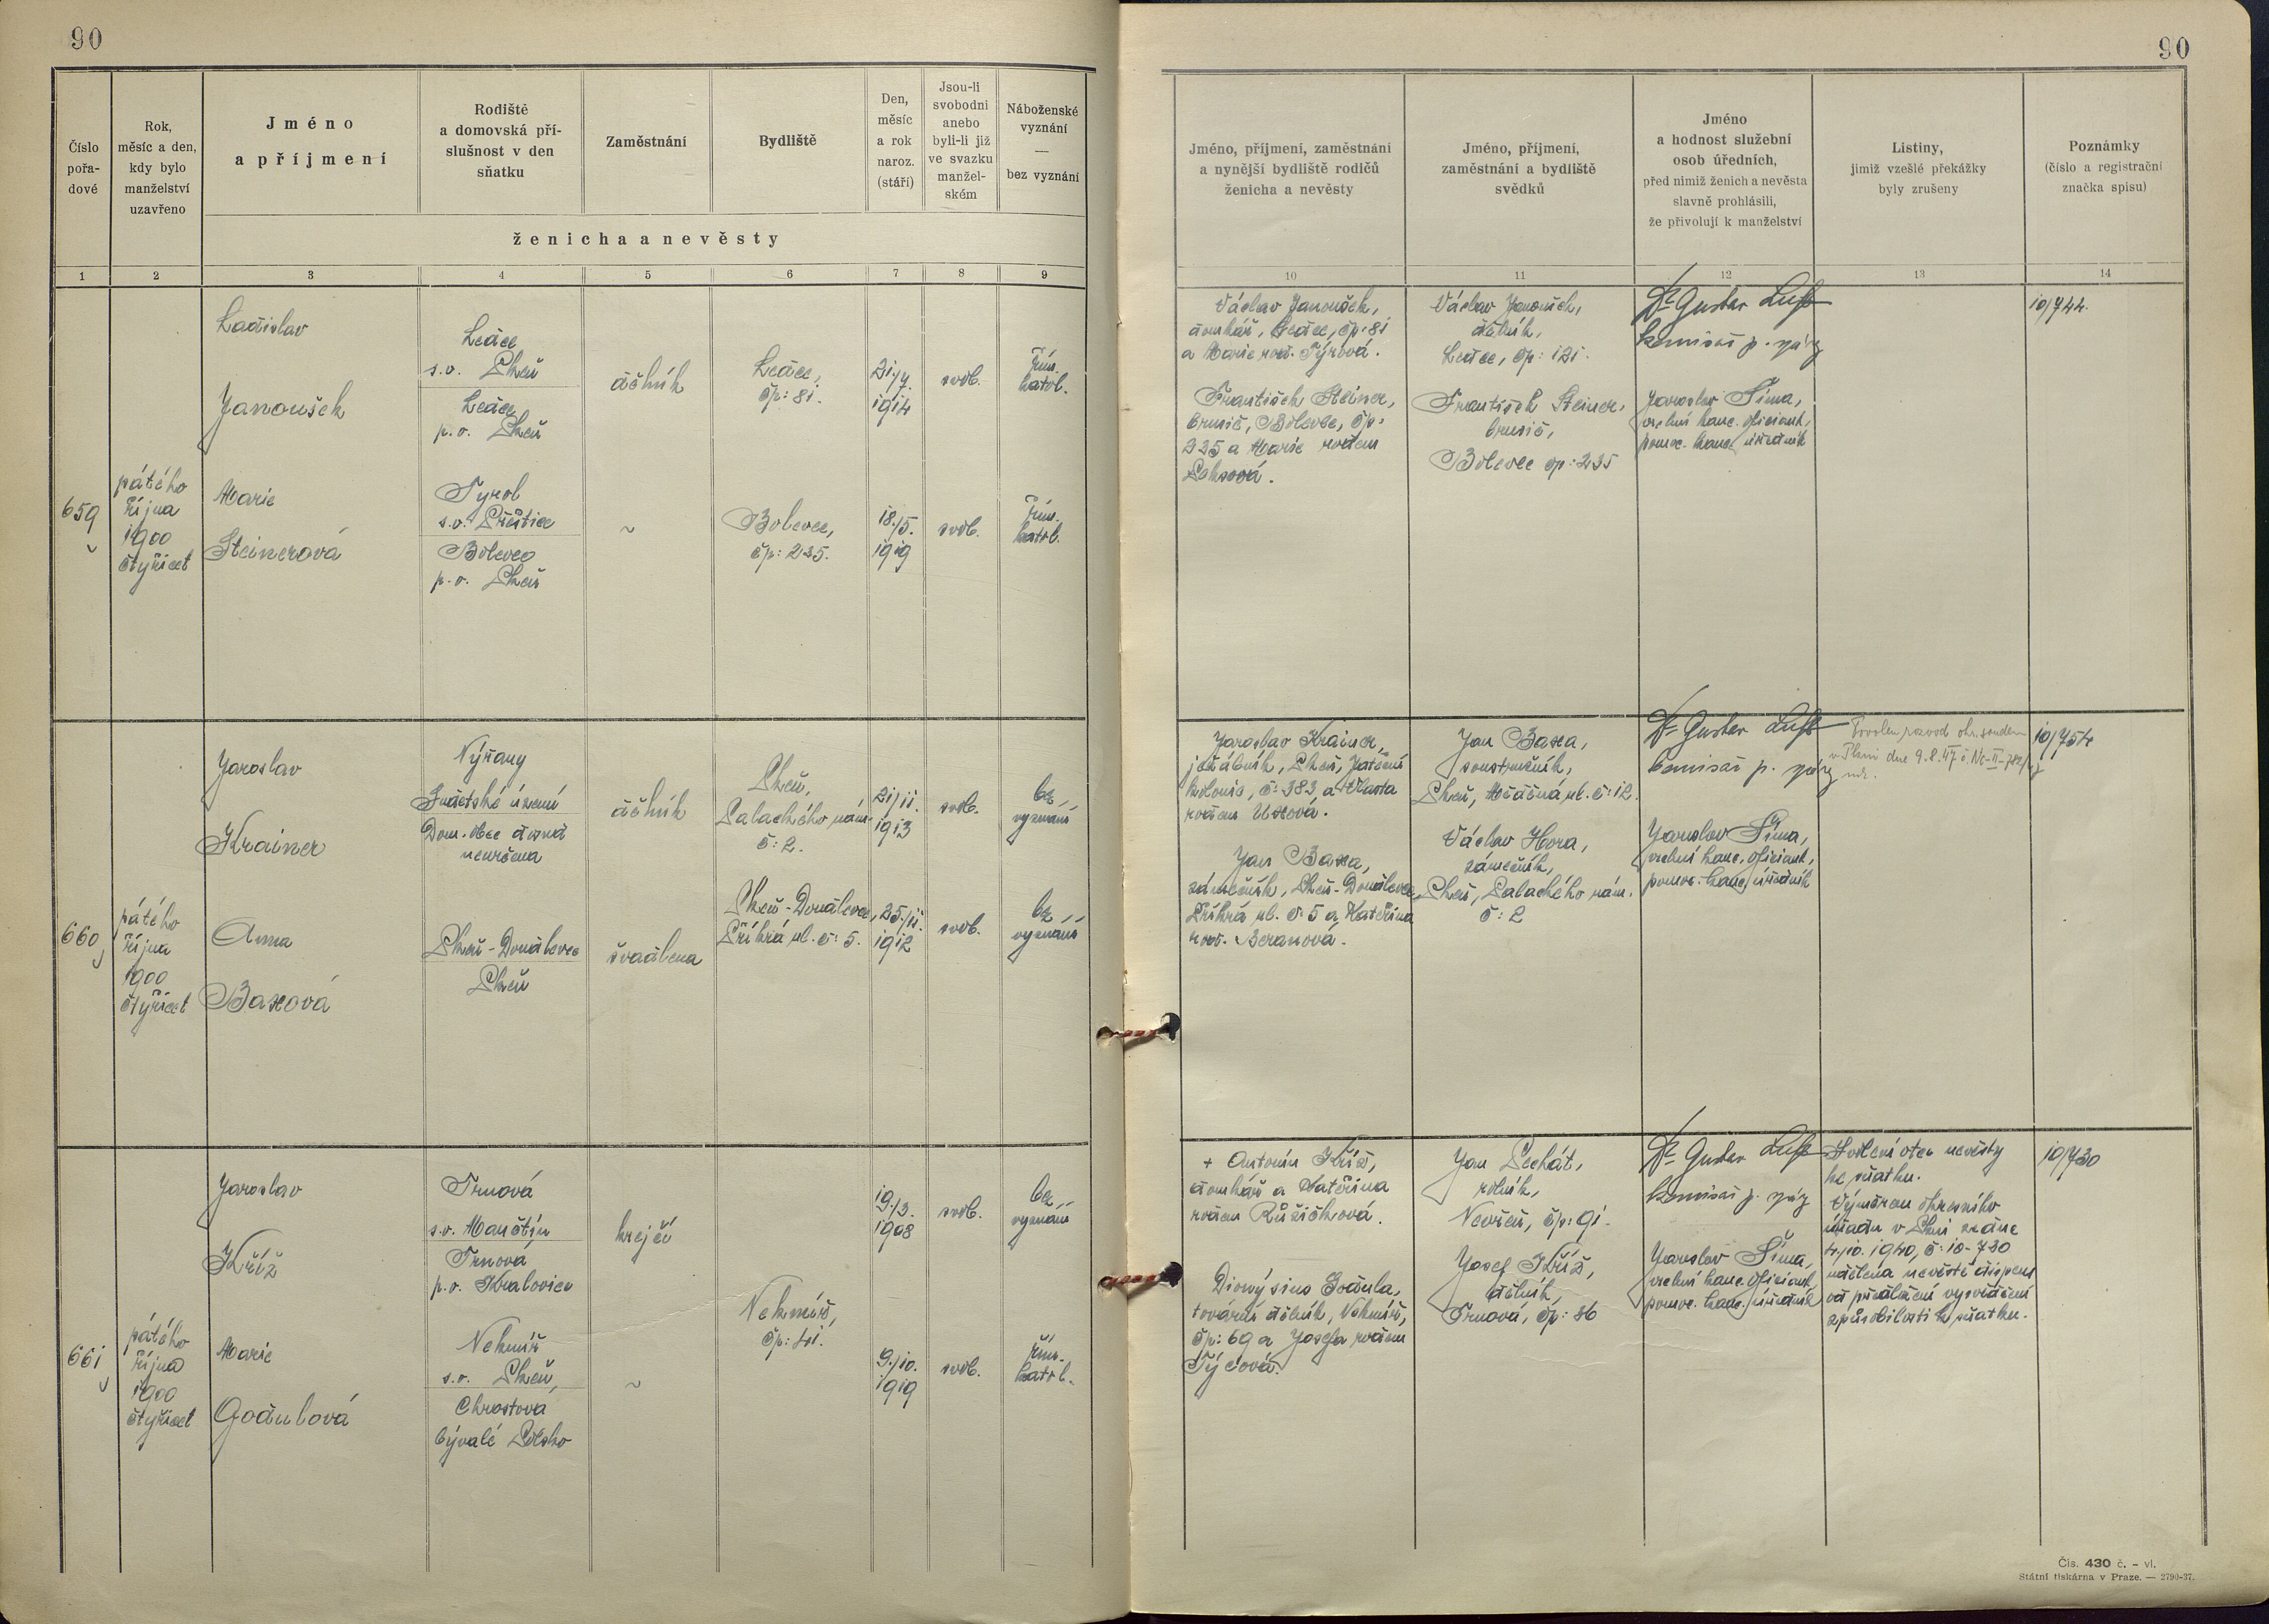 90
90
Číslo
pořa-
dové
Rok,
měsíc a den,
kdy bylo
manželství
uzavřeno
Jméno
a příjmení
Rodiště
a domovská pří-
slušnost v den
sňatku
Zaměstnání
Bydliště
Den,
měsíc
a rok
naroz.
(stáří)
Jsou-li
svobodni
anebo
byli-li již
ve svazku
manžel-
ském
Náboženské
vyznání
—
bez vyznání
ženicha a nevěsty
Jméno, příjmení, zaměstnání
a nynější bydliště rodičů
ženicha a nevěsty
Jméno, příjmení,
zaměstnání a bydliště
svědků
Jméno
a hodnost služební
osob úředních,
před nimiž ženich a nevěsta
slavně prohlásili,
že přivolují k manželství
Listiny,
jimiž vzešlé překážky
byly zrušeny
Poznámky
(číslo a registrační
značka spisu)
1 2 3 4 5 6 7 8 9 10 11 12 13 14
659
pátého
října
1900
čtyřicet
Ladislav
Janoušek
Ledce
s.o. Plzeň
Ledce
p.o. Plzeň
dělník
Ledce,
čp: 81.
21/7.
1914
svob.
řím.
katol.
Marie
Steinerová
Tyrol
s.o. Přeštice
Bolevec
p.o. Plzeň
~
Bolevec,
čp: 235.
18./5.
1919
svob.
řím.
katol.
Václav Janoušek,
domkář, Ledce, čp: 81
a Marie roz. Týrová.
František Steiner,
brusič, Bolevec, čp:
235 a Marie rozen
Václav Janoušek,
dělník,
Ledce, čp: 121.
František Steiner,
brusič,
Bolevec čp: 235
Dr Gustav Luft
komisař p.
Jaroslav Šíma,
vrchní kanc. oficiant,
pomoc. kanc. úředník
10/744.
660
pátého
října
1900
čtyřicet
Jaroslav
Krainer
Nýřany
Sudetské území
Dom. obec dosud
neurčena
dělník
Plzeň,
Palackého nám.
č: 2.
21/11.
1913
svob.
bez
vyznání
Anna
Baxová
Plzeň-Doudlevce
Plzeň
švadlena
Plzeň-Doudlevce,
Příkrá ul. č: 5.
25./11.
1912
svob.
bez
vyznání
Jaroslav Krainer,
jeřábník, Plzeň, Jateční
kolonie, č: 383 a Vlasta
rozen Uxová.
Jan Baxa,
zámečník, Plzeň-Doudlevce,
Příkrá ul. č: 5 a Kateřina
roz. Beranová.
Jan Baxa,
soustružník,
Plzeň, Mračná ul. č: 12.
Václav Hora,
zámečník,
Plzeň, Palackého nám.
č: 2
Dr Gustav Luft
komisař p.
Jaroslav Šíma,
vrchní kanc. oficiant,
pomoc. kanc. úředník
Povolen rozvod okr. soudem
v Plzni dne 9.8.47
10/754
661
pátého
října
1900
čtyřicet
Jaroslav
Kříž
Trnová
s.o. Manětín
Trnová
p.o. Kralovice
krejčí
19./3.
1908
svob.
bez
vyznání
Nekmíř,
čp: 41.
Marie
Godulová
Nekmíř
s.o. Plzeň,
Chrostova
bývalé Polsko
~
9./10.
1919
svob.
řím.
katol.
+ Antonín Kříž,
domkář a Kateřina
rozen Růžičková.
Dionýsius Godula,
tovární dělník, Nekmíř,
čp: 69 a Josefa rozen
Týcová.
Jan Pechát,
rolník,
Nevřeň, čp: 91.
Josef Kříž,
dělník,
Trnová, čp: 86
Dr Gustav Luft
komisař p.
Jaroslav Šíma,
vrchní kanc. oficiant,
pomoc. kanc. úředník
Svolení otce nevěsty
ke sňatku.
Výměrem okresního
úřadu v Plzni ze dne
4.10. 1940, č: 10-730
udělena nevěstě dispens
od předložení vysvědčení
způsobilosti k sňatku.
10/730
Čís. 430 č. - vl.
Státní tiskárna v Praze. — 2790-37.